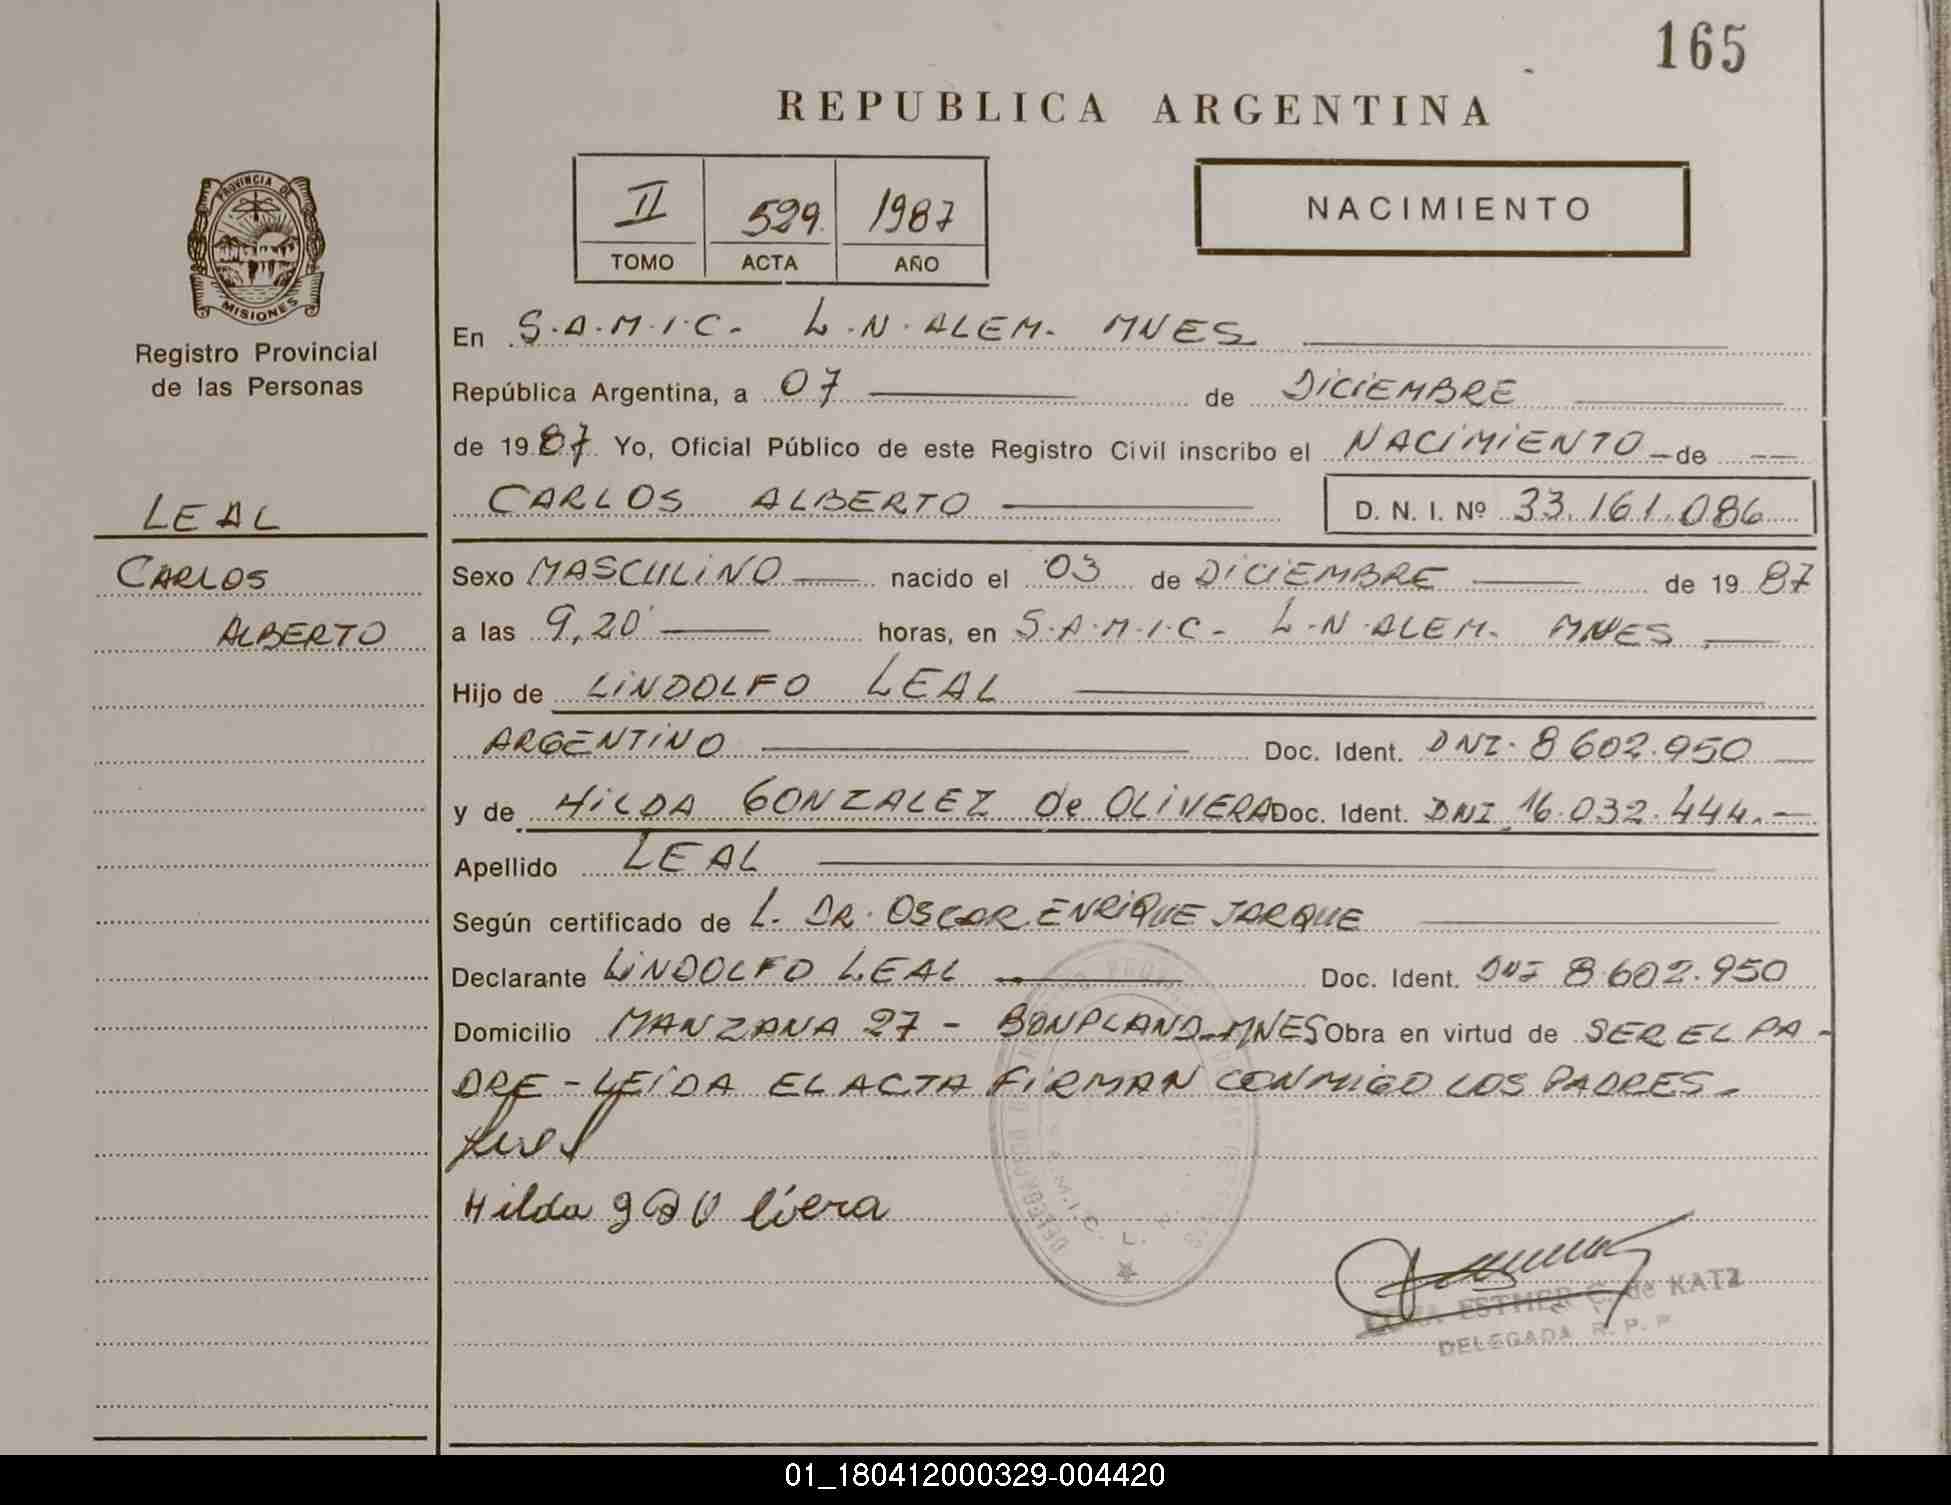 165
REPUBLICA ARGENTINA
II 529 1987
TOMO ACTA AÑO
NACIMIENTO
PROVINCIA DE
MISIONES
Registro Provincial
de las Personas
LEAL
CARLOS
ALBERTO
En S.A.M.I.C. L.N.ALEM. MNES
República Argentina, a 07 de DICIEMBRE
de 1987 Yo, Oficial Público de este Registro Civil inscribo el NACIMIENTO de
CARLOS ALBERTO D. N. I. Nº 33.161.086
Sexo MASCULINO nacido el 03 de DICIEMBRE de 1987
a las 9,20 horas, en S.A.M.I.C. L.N.ALEM. MNES
Hijo de LINDOLFO LEAL
ARGENTINO Doc. Ident. DNI. 8602.950
y de HILDA GONZALEZ de OLIVERA Doc. Ident. DNI 16.032.444.-
Apellido LEAL
Según certificado de L. DR. OSCAR ENRIQUE JARQUE
Declarante LINDOLFO LEAL Doc. Ident. DNI 8.602.950
Domicilio MANZANA 27 - BONPLAND-MNES Obra en virtud de SER EL PA-
DRE - LEÍDA EL ACTA FIRMAN CONMIGO LOS PADRES.
Hilda
ESTHER C. de KATZ
DELEGADA R.P.P
01_180412000329-004420